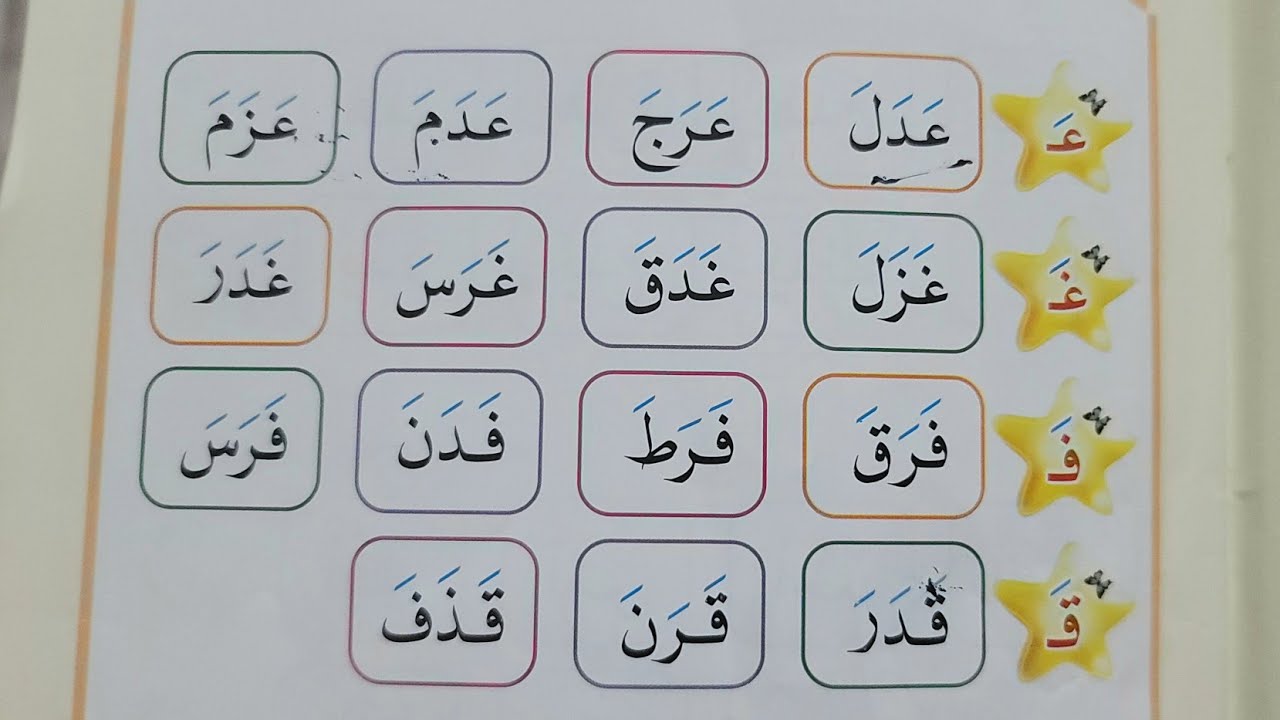 عَـ عَدَلَ عَرَجَ عَدَمَ عَزَمَ
غَـ غَزَلَ غَدَقَ غَرَسَ غَدَرَ
فَـ فَرَقَ فَرَطَ فَدَنَ فَرَسَ
قَـ قَدَرَ قَرَنَ قَذَفَ